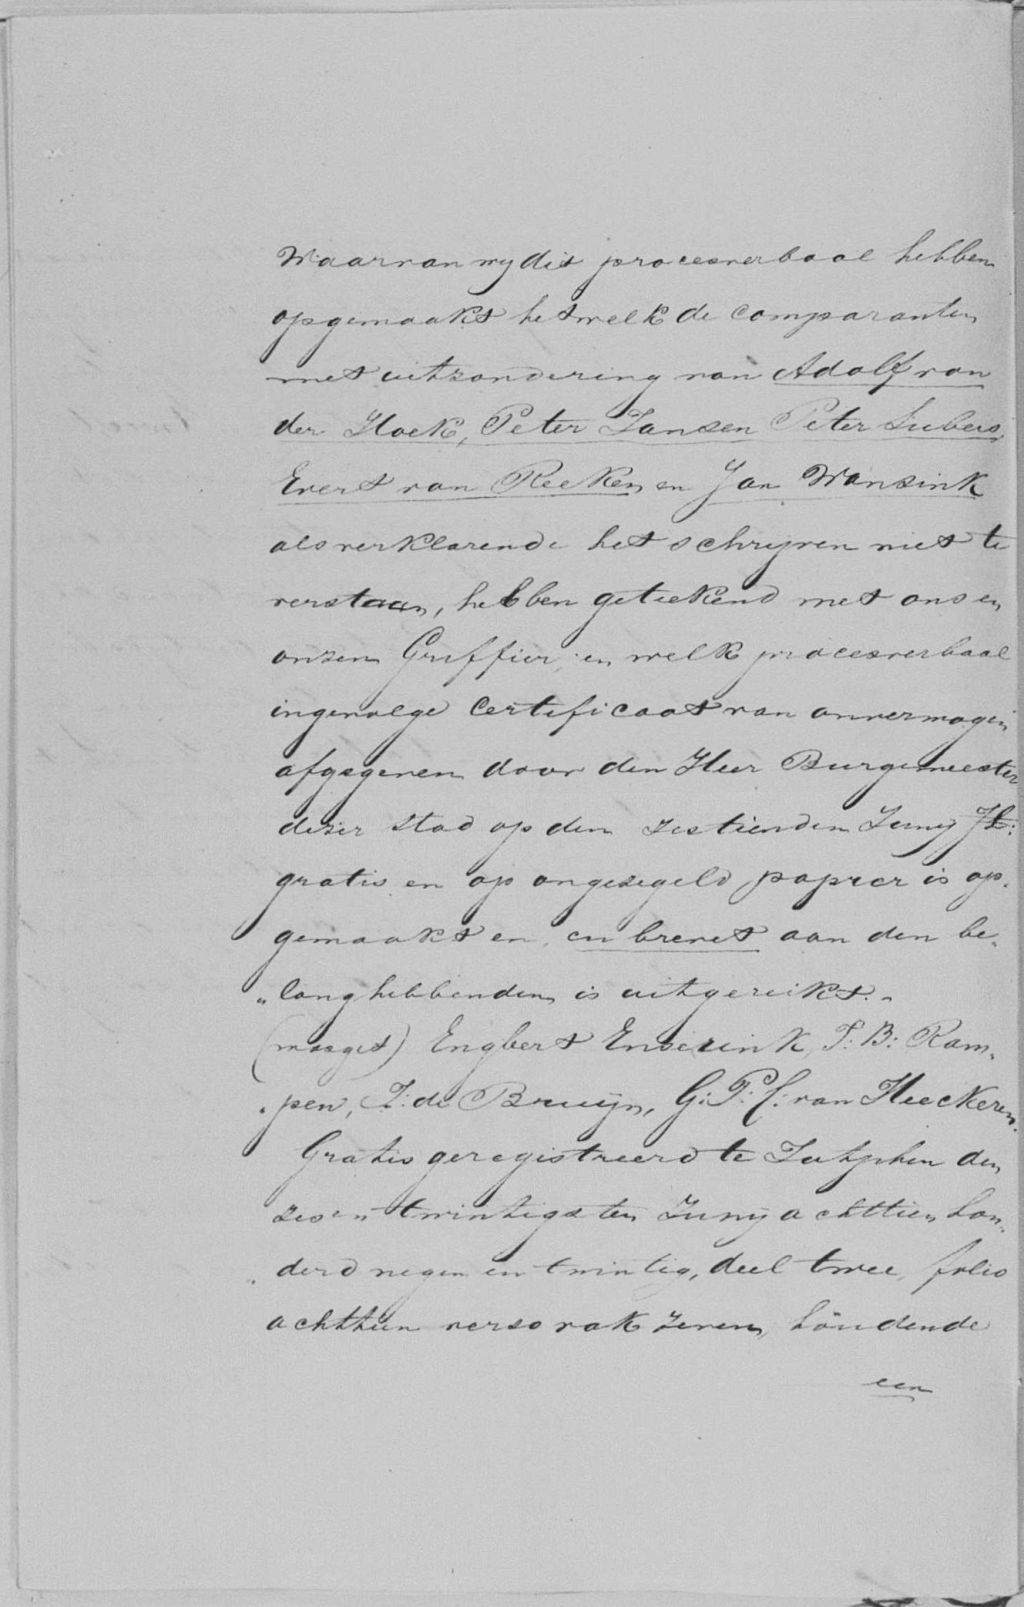 Waarvan wy dit procesverbaal hebben
opgemaakt hetwelk de comparanten
met uitzondering van Adolf van
der Hoek, Peter Jansen Peter Lubers,
Evert van Reeken en Jan Wansink
als verklarende het schryven niet te
verstaan, hebben geteekend met ons en
onzen Griffier, en welk procesverbaal
ingevolge Certificaat van onvermogen
afgegeven door den Heer Burgemeester
dezer stad op den zestienden Juny Jl:
gratis en op ongezegeld papier is op„
gemaakt en, en brevet aan den be„
„langhebbenden is uitgereikt.„
(was get) Engbert Enserink, T: B: Ram„
„pen, J: de Bruijn, G: P: C: van Heeckeren.
Gratis geregistreerd te Zutphen den
zes en twintigsten Juny achttien hon„
„derd negen en twintig, deel twee, folio
achttien verso vak zeven, houdende
een